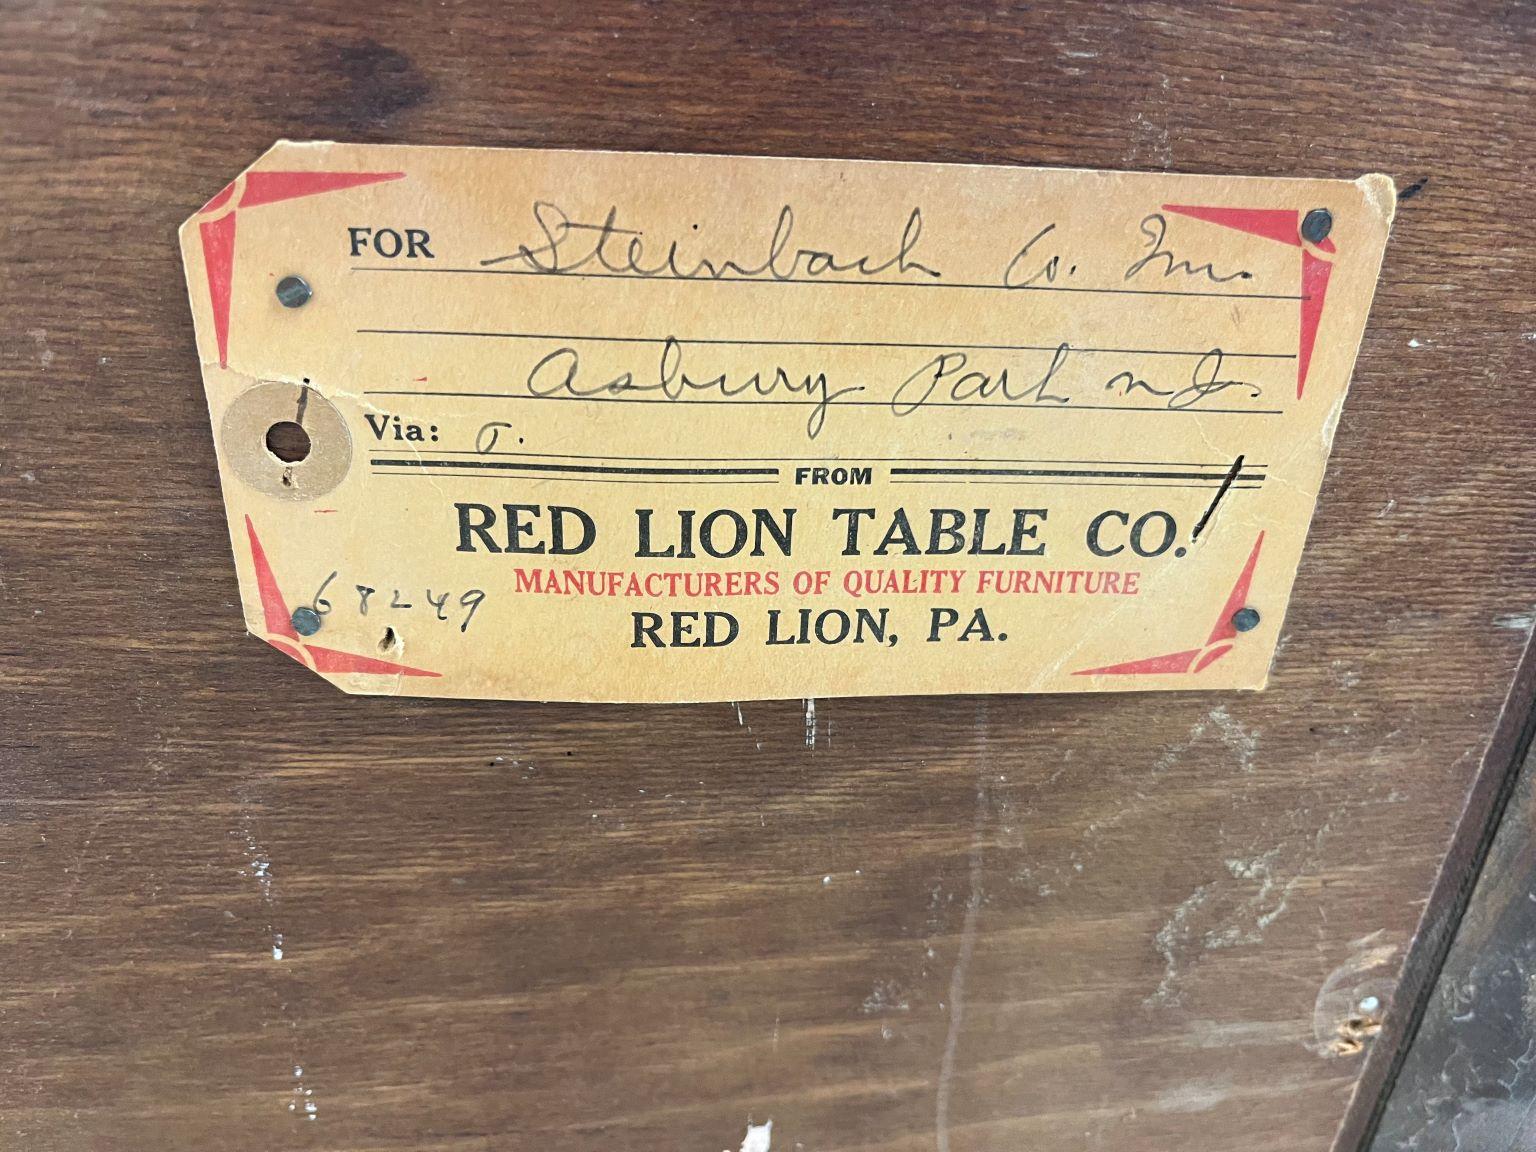 FOR Steinbach Co. Inc.
Asbury Park N.J.
Via: T.
FROM
RED LION TABLE CO.
MANUFACTURERS OF QUALITY FURNITURE
68249
RED LION, PA.